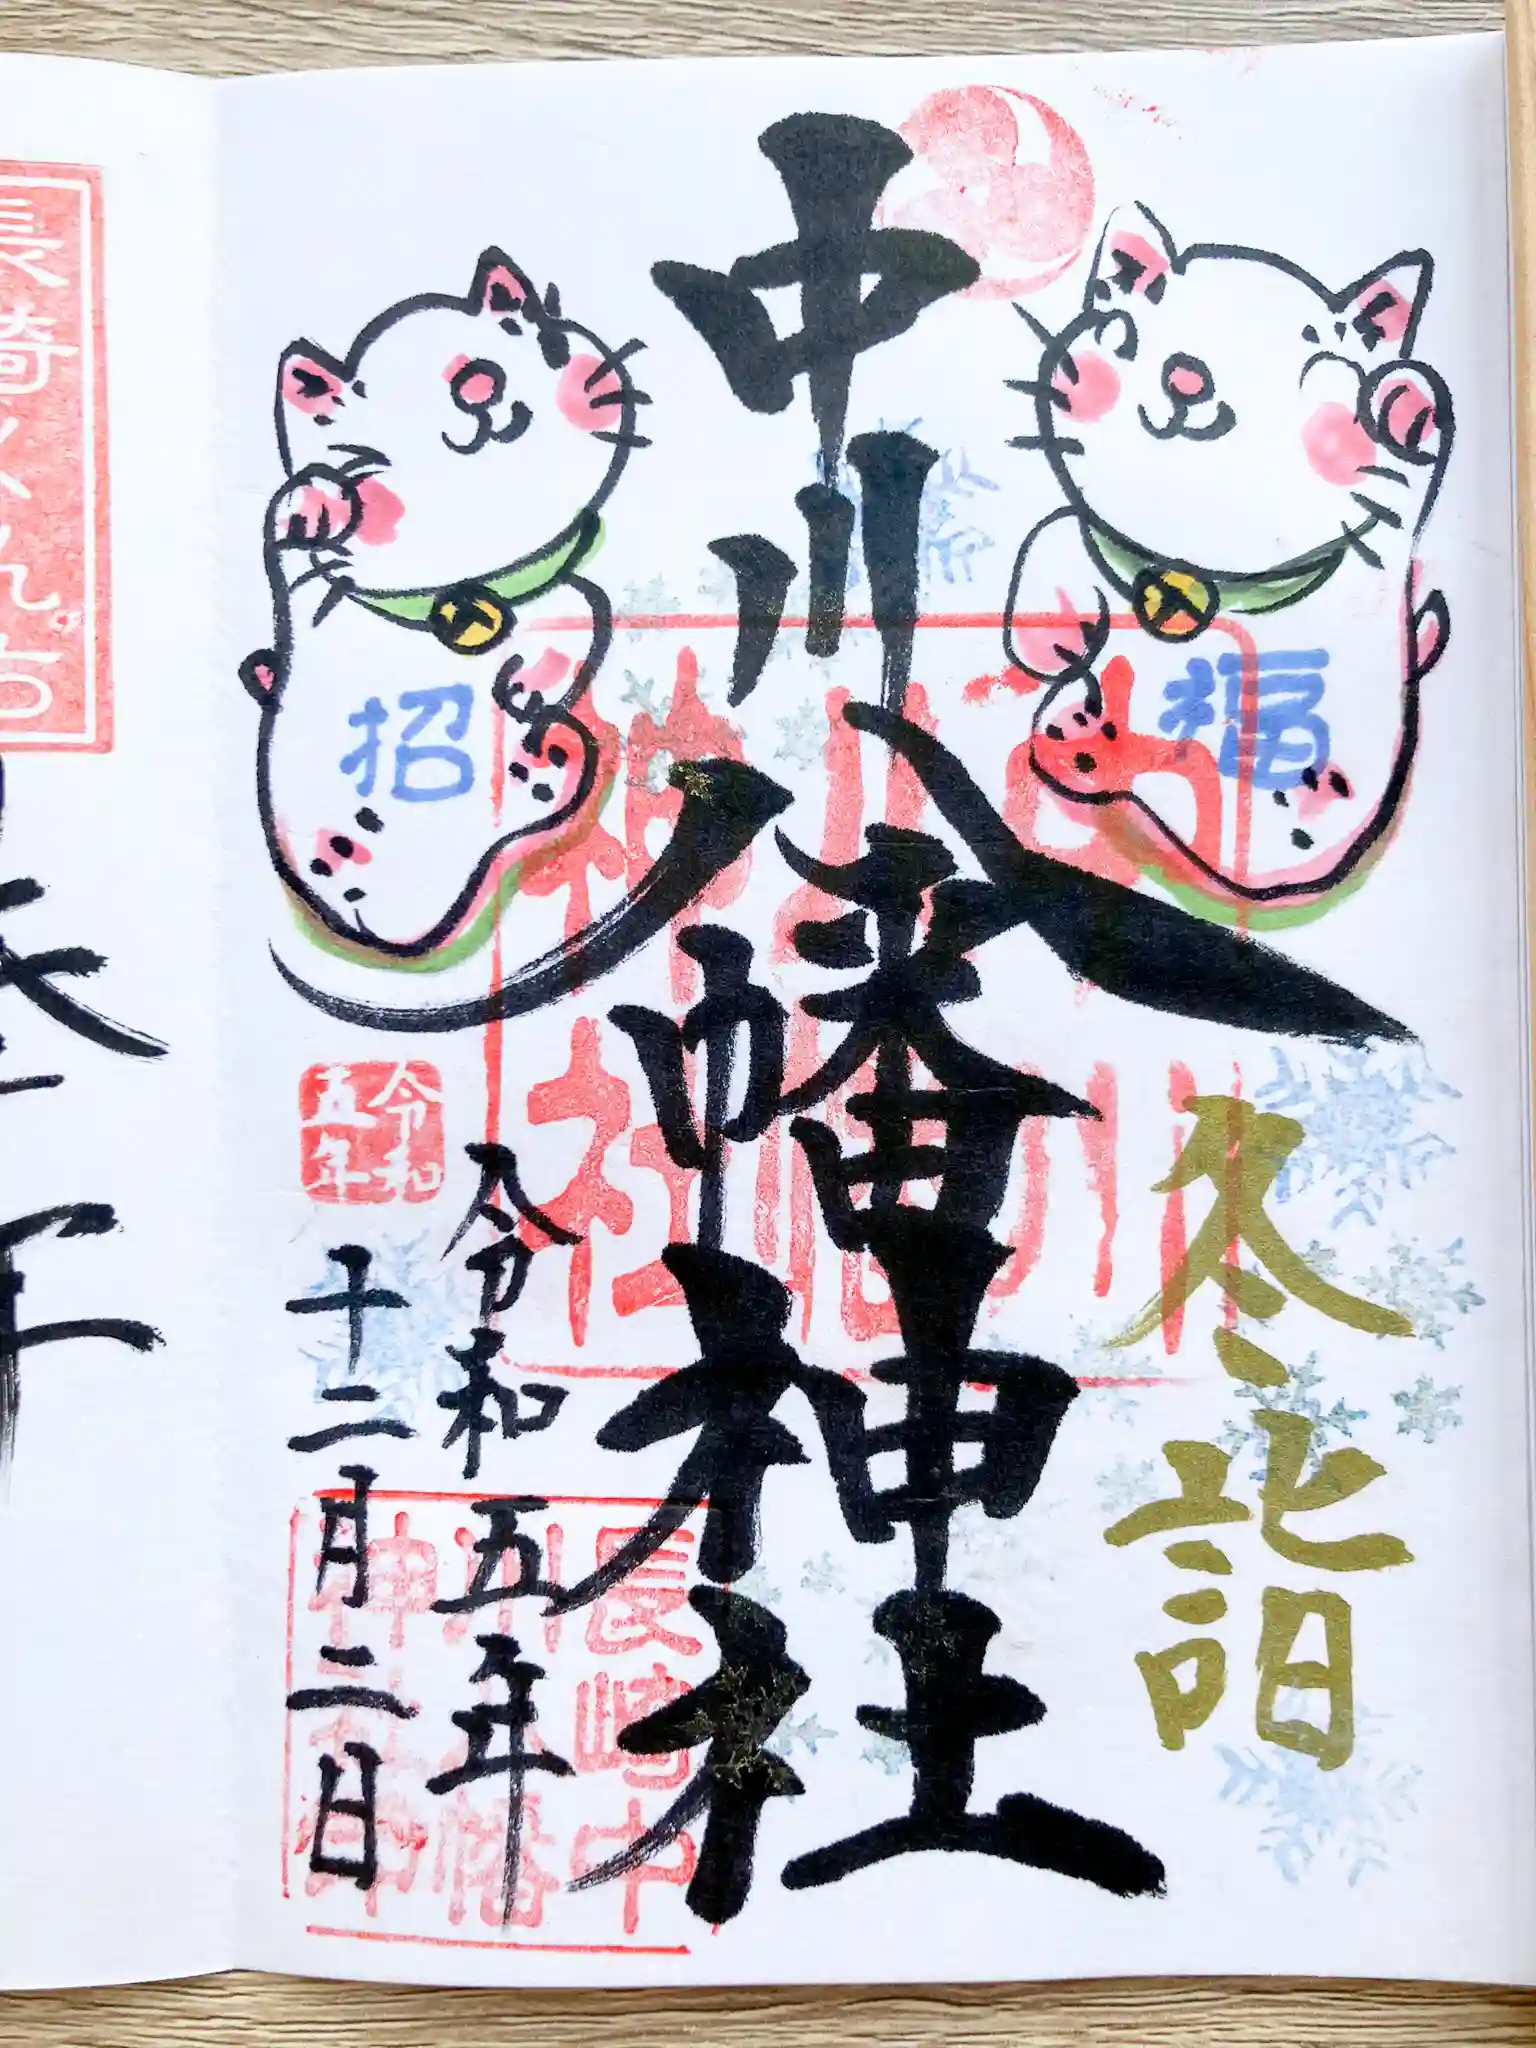 冬詣
福
中川八幡神社
招
令和五年
十二月二日
令和
五年
中川
八幡
神社
長崎中
川八幡
神社印
長崎くんち